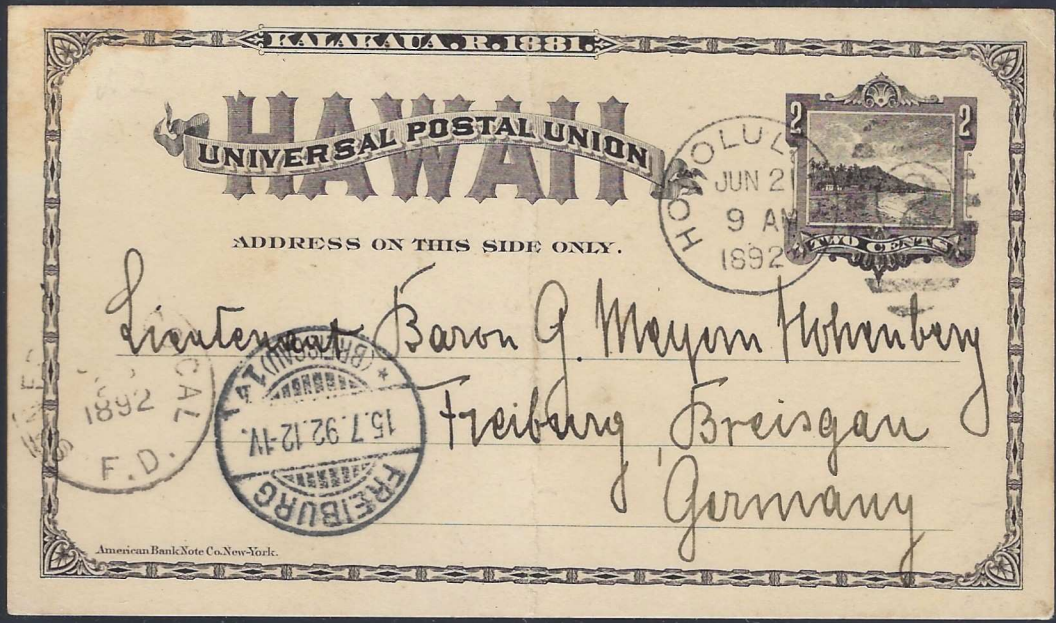 KALAKAUA.R.1881.
HAWAII
UNIVERSAL POSTAL UNION
2 2
TWO CENTS
ADDRESS ON THIS SIDE ONLY.
HONOLULU
JUN 21
9 AM
1892
Lieutenant Baron G. Meyern Hohenberg
Freiburg Breisgau
Germany
CAL
1892
F.D.
FREIBURG
15.7.92.12-1V.
(BREISGAU) 1
American Bank Note Co. New-York.